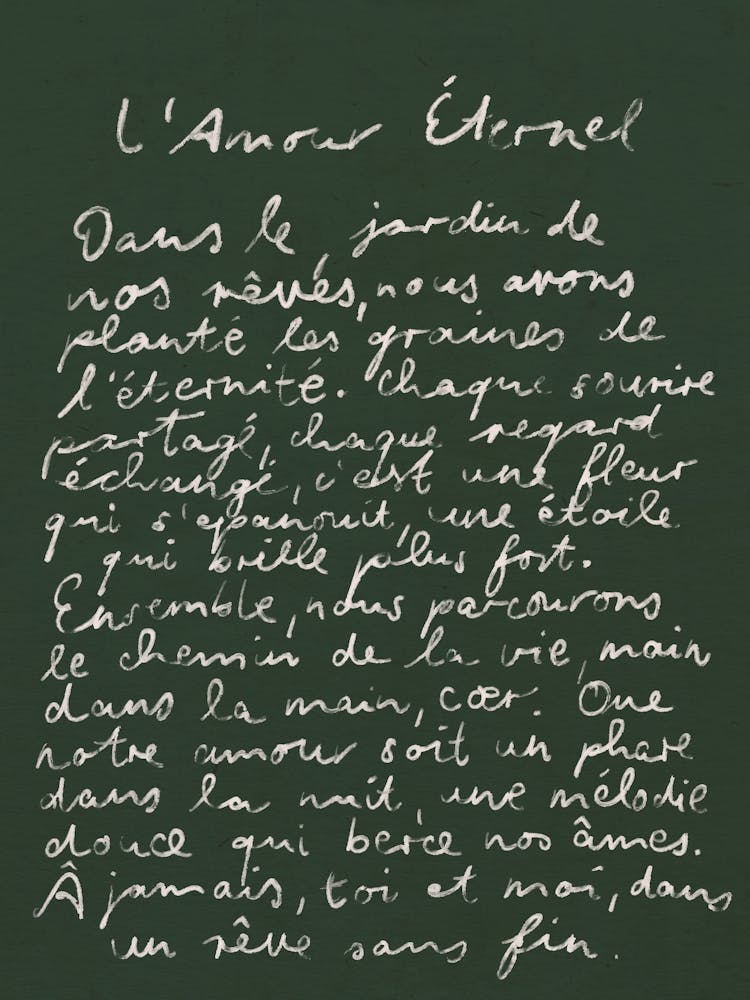 L'Amour Éternel
Dans le jardin de
nos rêves, nous avons
planté les graines de
l'éternité. Chaque sourire
partagé, chaque regard
échangé, c'est une fleur
qui s'épanouit, une étoile
qui brille plus fort.
Ensemble, nous parcourons
le chemin de la vie, main
dans la main, cœr. Que
notre amour soit un phare
dans la nuit, une mélodie
douce qui berce nos âmes.
Â jamais, toi et moi, dans
un rêve sans fin.